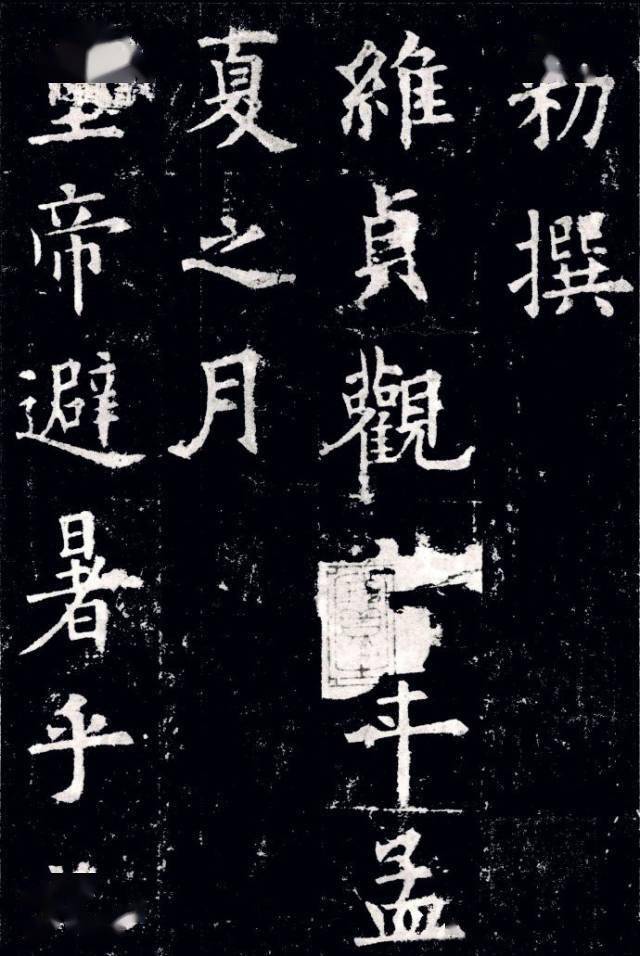 初撰
維貞觀年孟
夏之月
帝避暑乎